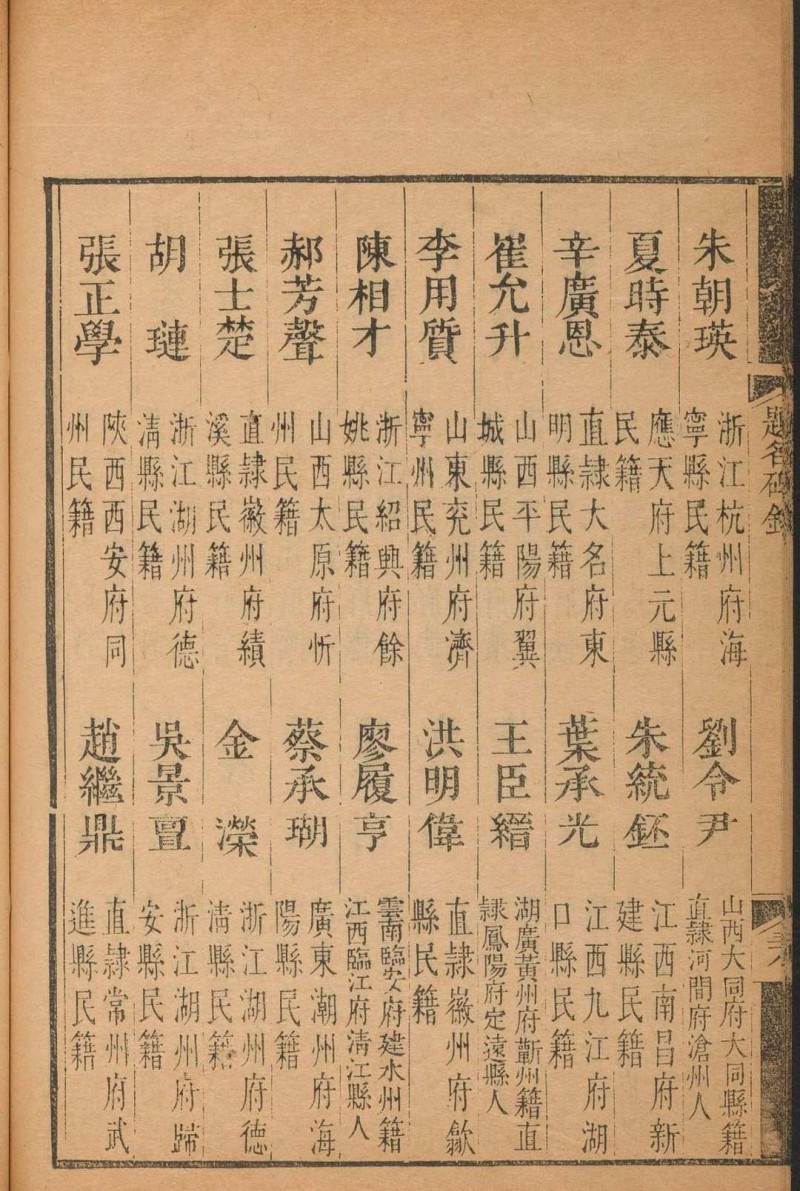 題名碑錄
朱朝瑛
浙江杭州府海
寧縣民籍
劉令尹
山西大同府大同縣籍
直隸河間府滄州人
夏時泰
應天府上元縣
民籍
朱統鉟
江西南昌府新
建縣民籍
辛廣恩
直隸大名府東
明縣民籍
葉承光
江西九江府湖
口縣民籍
崔允升
山西平陽府翼
城縣民籍
王臣縉
湖廣黃州府蘄州籍直
隸鳳陽府定遠縣人
李用質
山東兗州府濟
寧州民籍
洪明偉
直隸徽州府歙
縣民籍
陳相才
浙江紹興府餘
姚縣民籍
廖履亨
雲南臨安府建水州籍
江西臨江府清江縣人
郝芳聲
山西太原府忻
州民籍
蔡承瑚
廣東潮州府海
陽縣民籍
張士楚
直隸徽州府績
溪縣民籍
金濚
浙江湖州府德
清縣民籍
胡璉
浙江湖州府德
清縣民籍
吳景亶
浙江湖州府歸
安縣民籍
張正學
陝西西安府同
州民籍
趙繼鼎
直隸常州府武
進縣民籍